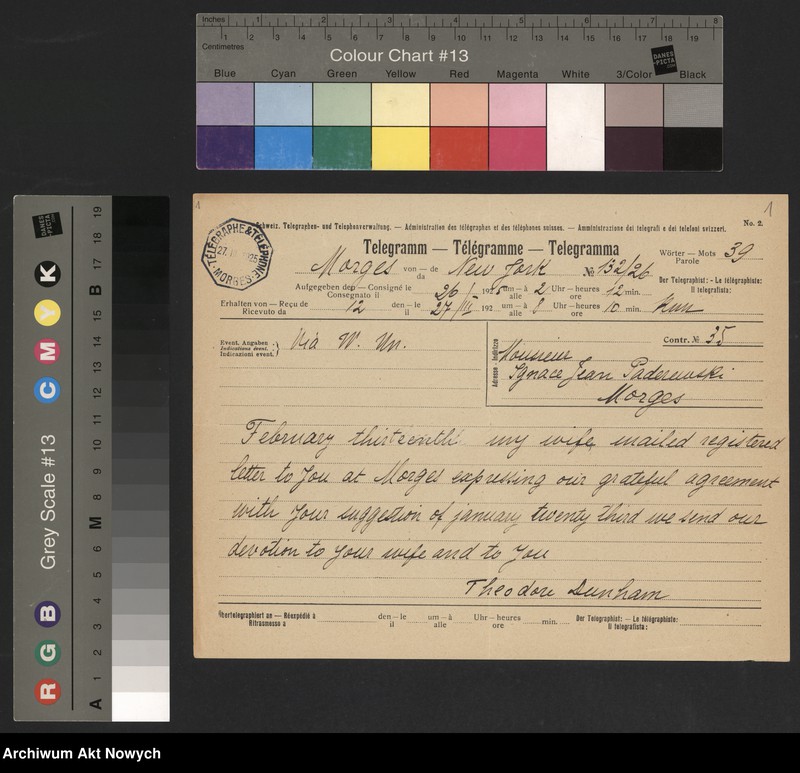 Inches 1 2 3 4 5 6 7 8
Centimetres 1 2 3 4 5 6 7 8 9 10 11 12 13 14 15 16 17 18 19
Colour Chart #13
DANES PICTA
Blue Cyan Green Yellow Red Magenta White 3/Color Black
Grey Scale #13
R G B C M Y K
DANES PICTA
A 1 2 3 4 5 6 M 8 9 10 11 12 13 14 15 B 17 18 19
1
1
Schweiz. Telegraphen- und Telephonverwaltung. — Administration des télégraphes et des téléphones suisses. — Amministrazione dei telegrafi e dei telefoni svizzeri.
No. 2.
TÉLÉGRAPHE & TÉLÉPHONE
27. 1925
MORGES
Telegramm — Télégramme — Telegramma
Wörter — Mots 39
Parole
Morges von — de New York № 132/26
da
Der Telegraphist: - Le télégraphiste:
Il telegrafista:
Aufgegeben den — Consigné le 26/ 1925 um — à 2 Uhr — heures 12 min.
Consegnato il alle ore
Erhalten von — Reçu de 12 den — le 27/II 192 um — à 8 Uhr — heures 10 min.
Ricevuto da il alle ore
Event. Angaben
Indications évent.
Indicazioni event.
Via W. Un.
Contr. № 35
Adresse - Indirizzo
Monsieur
Ignace Jean Paderewski
Morges
February thirteenth my wife mailed registered
letter to you at Morges expressing our grateful agreement
with your suggestion of january twenty third we send our
devotion to your wife and to you
Theodore Dunham
Übertelegraphiert an — Réexpédié à den — le um — à Uhr — heures min. Der Telegraphist: — Le télégraphiste:
Ritrasmesso a il alle ore Il telegrafista:
Archiwum Akt Nowych